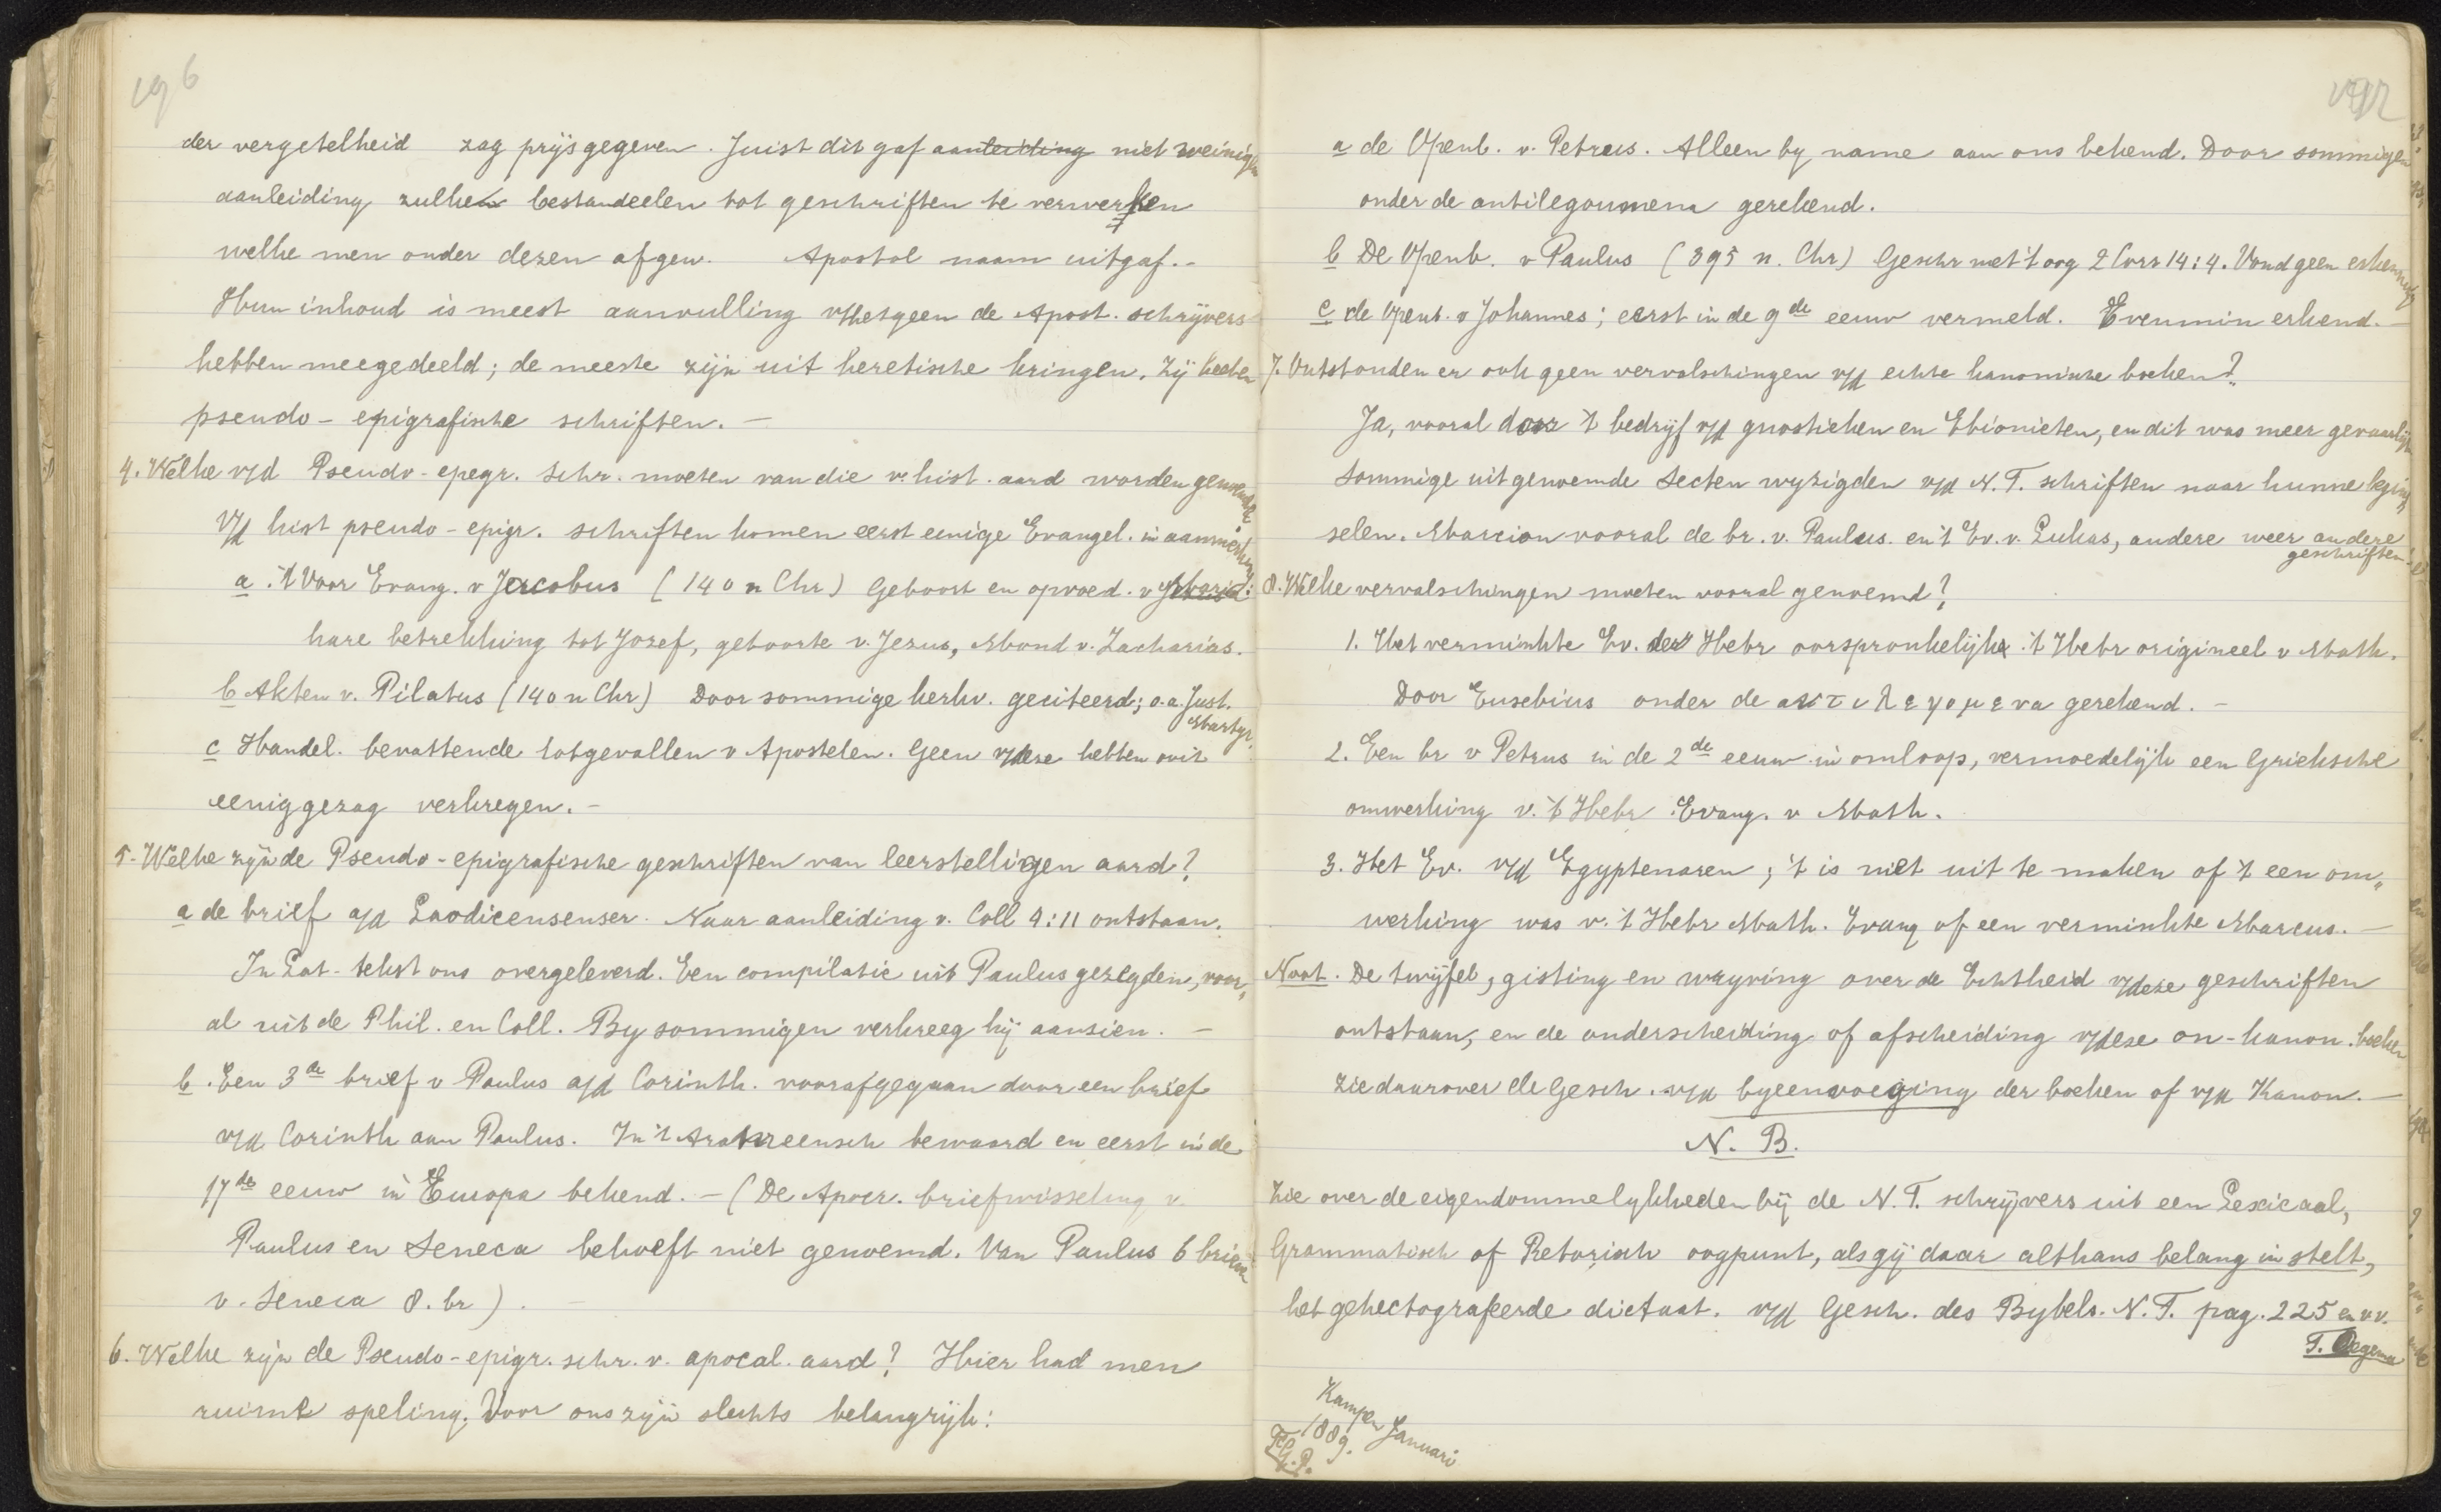 196
der vergetelheid zag prijsgegeven. Juist dit gaf aanleiding niet weinigen
aanleiding zulken bestandeelen tot geschriften te verwerken
welke men onder dezen afgew. Apostol naam uitgaf.-
Hun inhoud is meest aanvulling v/hetgeen de Apost. schrijvers
hebben meegedeeld; de meeste zijn uit heretische kringen. Zij heeten
pseudo-epigrafische schriften. -
4. Welke v/d Pseudo-epegr. Schr. moeten van die v. hist. aard worden genoemd?
V/d hist pseudo-epigr. schriften komen eerst eenige Evangel. in aanmerking:
a. 't Voor Evang. v Jacobus (140 n Chr) Geboort en opvoed. v Maria:
hare betrekking tot Jozef, geboorte v. Jezus, Moord v. Zacharias.
b Akten v. Pilatus (140 n Chr) Door sommige kerkv. geciteerd; o.a. Just.
Martyr.
c Handel. bevattende lotgevallen v Apostelen. Geen v/deze hebben ooit
eenig gezag verkregen. -
5. Welke zijn de Pseudo-epigrafische geschriften van leerstelligen aard?
a de brief a/d Laodicensenser. Naar aanleiding v. Coll 4:11 ontstaan.
In Lat. tekst ons overgeleverd. Een compilatie uit Paulus gezegden, voor„
al uit de Phil. en Coll. By sommigen verkreeg hij aanzien. -
b. Een 3de brief v Paulus a/d Corinth. voorafgegaan door een brief
v/d Corinth aan Paulus. In 't bewaard en eerst in de
17de eeuw in Europa bekend. - (De Apocr. briefwisseling v.
Paulus en Seneca behoeft niet genoemd. Van Paulus 6 brieven
v. Seneca 8. br). -
6. Welke zijn de Pseudo-epigr. schr. v. apocal. aard? Hier had men
ruime speling. Voor ons zijn slechts belangrijk:
a de Openb. v. Petrus. Alleen by name aan ons bekend. Door sommigen
onder de antilegoumena gerekend.
b De Openb. v Paulus (395 n. Chr) Geschr met 't oog 2 Corr 14:4. Vond geen erkenning
c de Openb. v Johannes; eerst in de 9de eeuw vermeld. Evenmin erkend. -
7. Ontstonden er ook geen vervalschingen v/d echte kanonieke boeken?
Ja, vooral door 't bedrijf v/d gnostieken en Ebionieten, en dit was meer gevaarlijk
Sommige uit genoemde Secten wyzigden v/d N.T. schriften naar hunne begin„
selen. Marcion vooral de br. v. Paulus. en 't Ev. v. Lukas, andere weer andere
geschriften.
8. Welke vervalschingen moeten vooral genoemd?
1. Het verminkte Ev. der Hebr oorspronkelijk 't Hebr origineel v Math.
Door Eusebius onder de αντιλεγομενα gerekend. -
2. Een br v Petrus in de 2de eeuw in omloop, vermoedelijk een Grieksche
omwerking v. 't Hebr. Evang. v Math.
3. Het Ev. v/d Egyptenaren; 't is niet uit te maken of 't een om„
werking was v. 't Hebr Math. Evang of een verminkte Marcus. -
Noot. De twijfel, gisting en wryving over de Echtheid v/deze geschriften
ontstaan, en de onderscheiding of afscheiding v/deze on-kanon. boeken
zie daarover de Gesch. v/d byeenvoeging der boeken of v/d Kanon. -
N. B.
Zie over de eigendommelykheden bij de N.T. schrijvers uit een Lexicaal,
Grammatisch of Retorisch oogpunt, als gij daar althans belang in stelt,
het gehectografeerde dictaat. v/d Gesch. des Bybels. N.T. pag. 225 en vv.
Kampen Januari
1889.